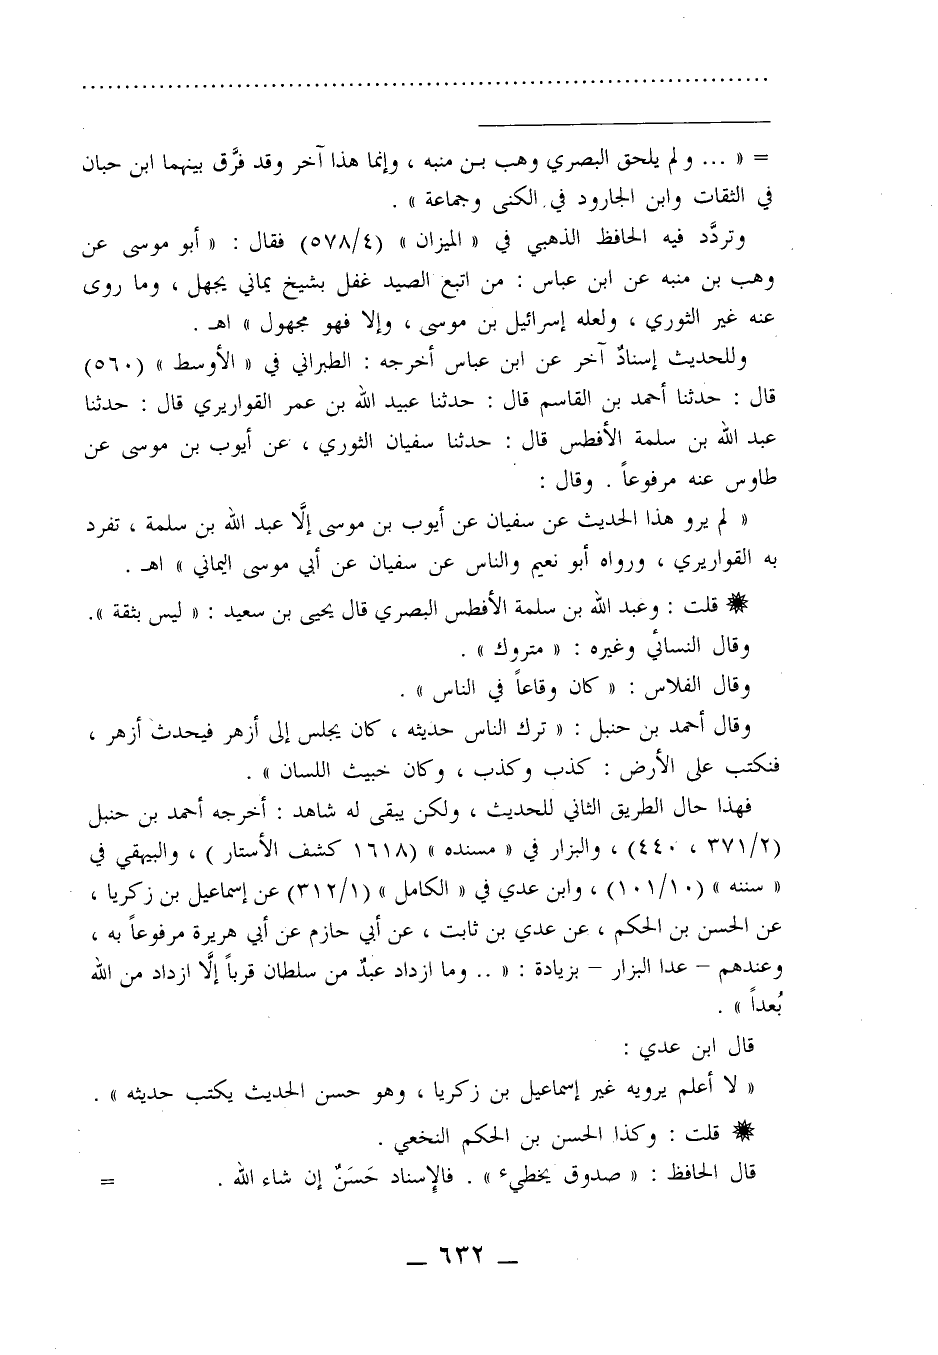 = « ... ولم يلحق البصري وهب بـن منبه ، وإنما هذا آخر وقد فرَّق بينهما ابن حبان
في الثقات وابن الجارود في الكنى وجماعة » .
وتردَّد فيه الحافظ الذهبي في « الميزان » (٥٧٨/٤) فقال : « أبو موسى عن
وهب بن منبه عن ابن عباس : من اتبع الصيد غفل بشيخ يماني يجهل ، وما روى
عنه غير الثوري ، ولعله إسرائيل بن موسى ، وإلا فهو مجهول » اهـ .
وللحديث إسنادٌ آخر عن ابن عباس أخرجه : الطبراني في « الأوسط » (٥٦٠)
قال : حدثنا أحمد بن القاسم قال : حدثنا عبيد الله بن عمر القواريري قال : حدثنا
عبد الله بن سلمة الأفطس قال : حدثنا سفيان الثوري ، عن أيوب بن موسى عن
طاوس عنه مرفوعاً . وقال :
« لم يرو هذا الحديث عن سفيان عن أيوب بن موسى إلَّا عبد الله بن سلمة ، تفرد
به القواريري ، ورواه أبو نعيم والناس عن سفيان عن أبي موسى اليماني » اهـ .
❋ قلت : وعبد الله بن سلمة الأفطس البصري قال يحيى بن سعيد : « ليس بثقة ».
وقال النسائي وغيره : « متروك » .
وقال الفلاس : « كان وقاعاً في الناس » .
وقال أحمد بن حنبل : « ترك الناس حديثه ، كان يجلس إلى أزهر فيحدث أزهر ،
فنكتب على الأرض : كذب وكذب ، وكان خبيث اللسان » .
فهذا حال الطريق الثاني للحديث ، ولكن يبقى له شاهد : أخرجه أحمد بن حنبل
(٣٧١/٢ ، ٤٤٠) ، والبزار في « مسنده » (١٦١٨ كشف الأستار ) ، والبيهقي في
« سننه » (١٠١/١٠) ، وابن عدي في « الكامل » (٣١٢/١) عن إسماعيل بن زكريا ،
عن الحسن بن الحكم ، عن عدي بن ثابت ، عن أبي حازم عن أبي هريرة مرفوعاً به ،
وعندهم – عدا البزار – بزيادة : « .. وما ازداد عبدٌ من سلطان قرباً إلَّا ازداد من الله
بُعداً » .
قال ابن عدي :
« لا أعلم يرويه غير إسماعيل بن زكريا ، وهو حسن الحديث يكتب حديثه » .
❋ قلت : وكذا الحسن بن الحكم النخعي .
قال الحافظ : « صدوق يخطيء » . فالإسناد حَسَنٌ إن شاء الله . =
ـ ٦٣٢ ـ